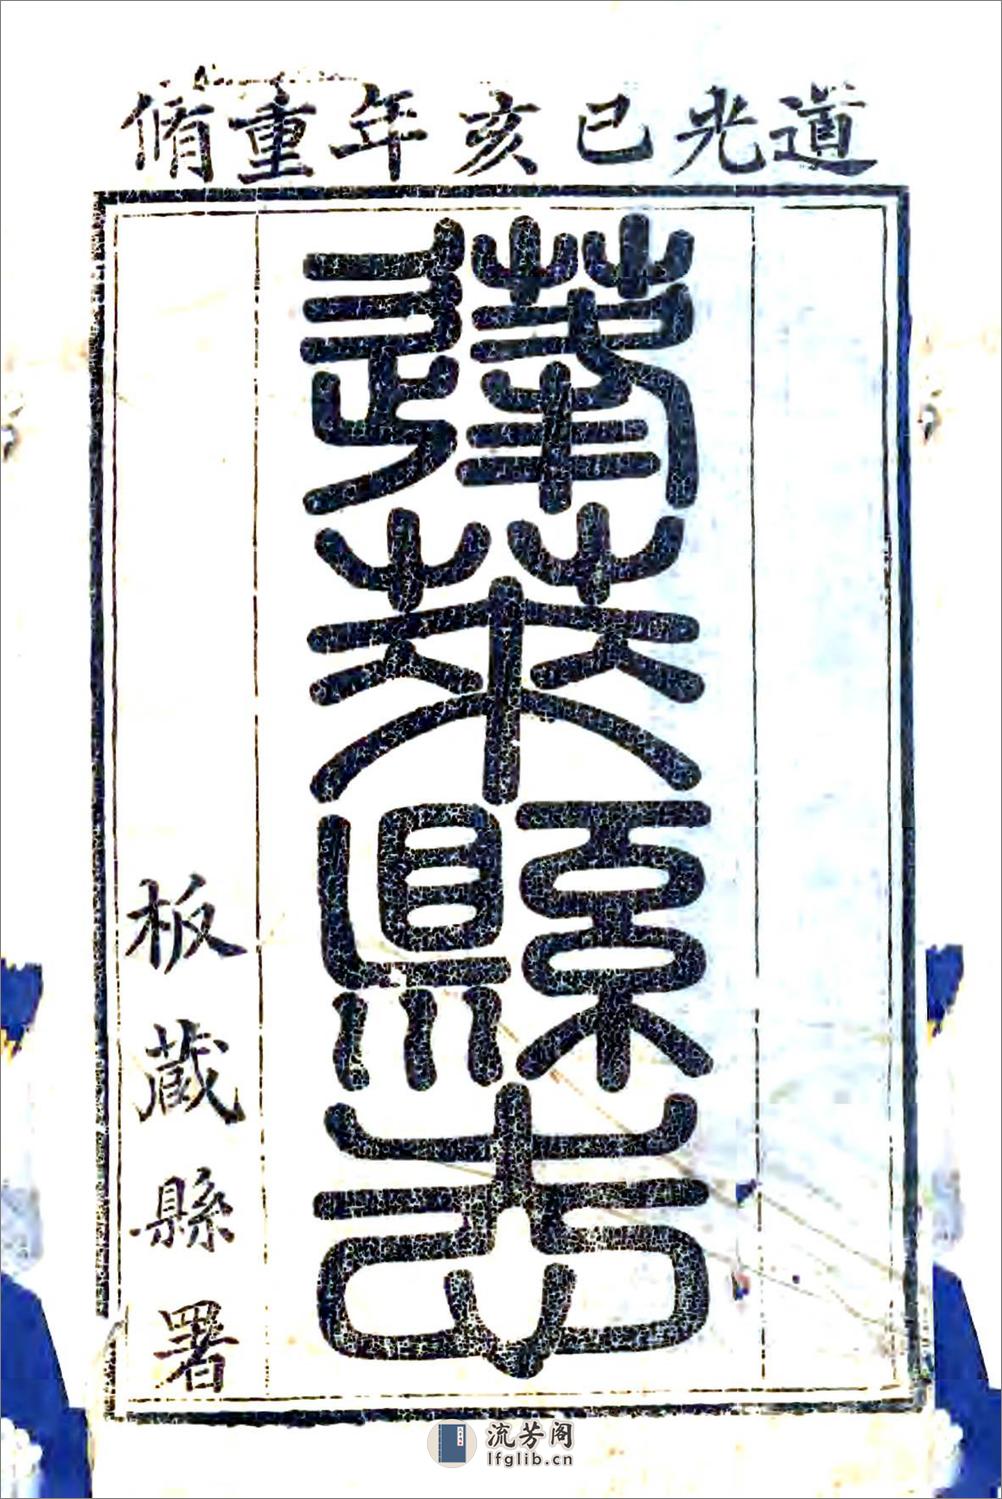 道光已亥年重脩
蓬萊縣志
板藏縣署
流芳阁
lfglib.cn